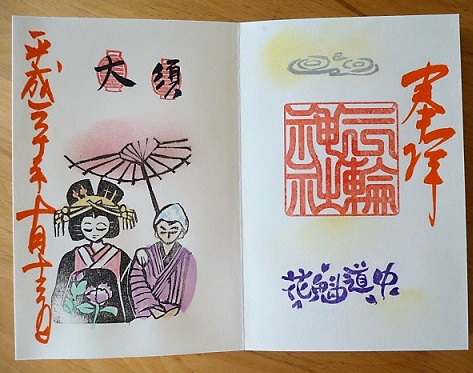 奉拝
三輪
神社
花魁道中
大須
平成三十年十月十三日